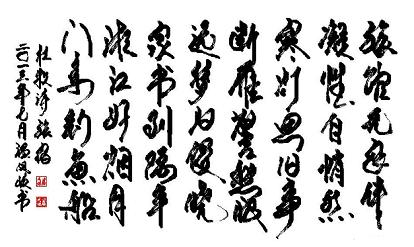 旅馆无良伴
凝情自悄然
寒灯思旧事
断雁警愁眠
远梦归侵晓
家书到隔年
沧江好烟月
门系钓鱼船
杜牧诗旅宿
二〇一三年七月书